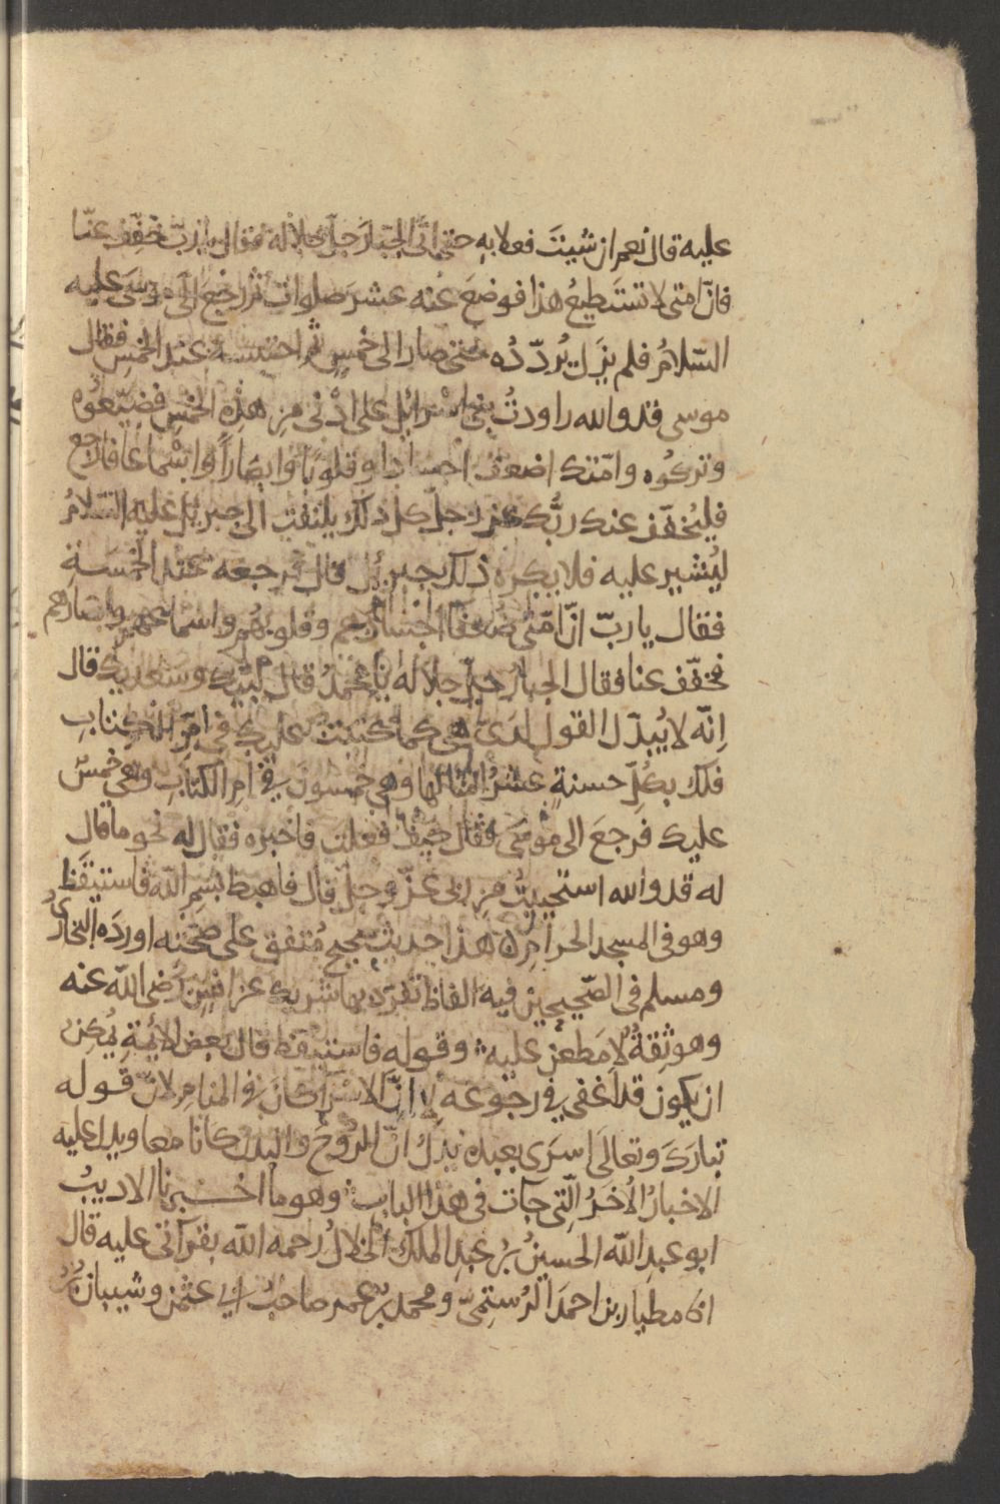 عليه قال نعم ان شيت فعلا به حتى اتى الجبّار جلّ جلاله فقال يا ربّ خفّف عنّا
فانّ امتى لا تستطيع هذا فوضع عنه عشر صلوات ثم رجع الى موسى عليه
السّلامُ فلم يزل يُردّدُه حتى صار الى خمسٍ ثم احتبسه عند الخمس فقال
موسى قد والله راودتُ بنى اسرائيل على ادنى من هذِه الخمس فضيّعوُه
وتركُوه وامّتك اضعف اجسادا وقلوبًا وابصاراً واسْماعًا فارجع
فليُخفّف عنك ربُّك عز وجلّ كل ذلك يلتفت الى جبريل عليه السّلامُ
ليُشير عليه فلا يكره ذلك جبريل قال فرجعه عند الخمسَةِ
فقال يا ربّ انّ امّتى ضُعَفآ اجسادهم وقلوبهُم واسماعهم وابصارهم
فخفّف عنا فقال الجبارُ جلّ جلاله يا محمدُ قال لبّيك وسَعْدَيك قال
اِنّه لا يُبدّل القول لدىّ هي كما كتبتُ عليك فى امّ الكتابِ
فلك بكُلّ حسنةٍ عشرُ امثالها وهي خمسون في ام الكتابِ وهي خمسٌ
عليك فرجعَ الى موسَى فقال كيف فعلت فاخبره فقال له نحو ما قال
له قد والله استحييتُ من ربى عزّ وجلّ قال فاهبط بسْمِ اللّه فاستيقظ
وهو فى المسجد الحرامِ ۞ هذا حديثٌ صحيح مُتفق على صحّته اورَدَه البُخارىُ
ومسلم فى الصّحيحين فيه الفاظ تفرّد بها شريك عن انسٍ رَضى اللّه عنه
وهو ثِقةٌ لا مَطعن عليه ۞ وقوله فاستيقظ قال بعض الائمةِ يُمكنُ
ان يكون قد اَغفى في رجُوعه لا انّ الاسْرآ كان فى المنامِ لانّ قوله
تبارَك وتعالى اسرَى بعبدِه يدلُ انّ الرُّوحَ والبدن كانا معا ويدل عليه
الاخبارُ الاُخَرُ الّتى جآت فى هذا الباب ۞ وهو ما اخبرنا الاديبُ
ابو عبدِ اللّه الحسينُ بنُ عبدِ الملك الخلالُ رحمه اللّه بقرآتى عليه قال
انا مطيار بن احمدَ الرُستمىّ ومحمد بن عمر صاحبُ ابي عثمن وشيبان بنُ